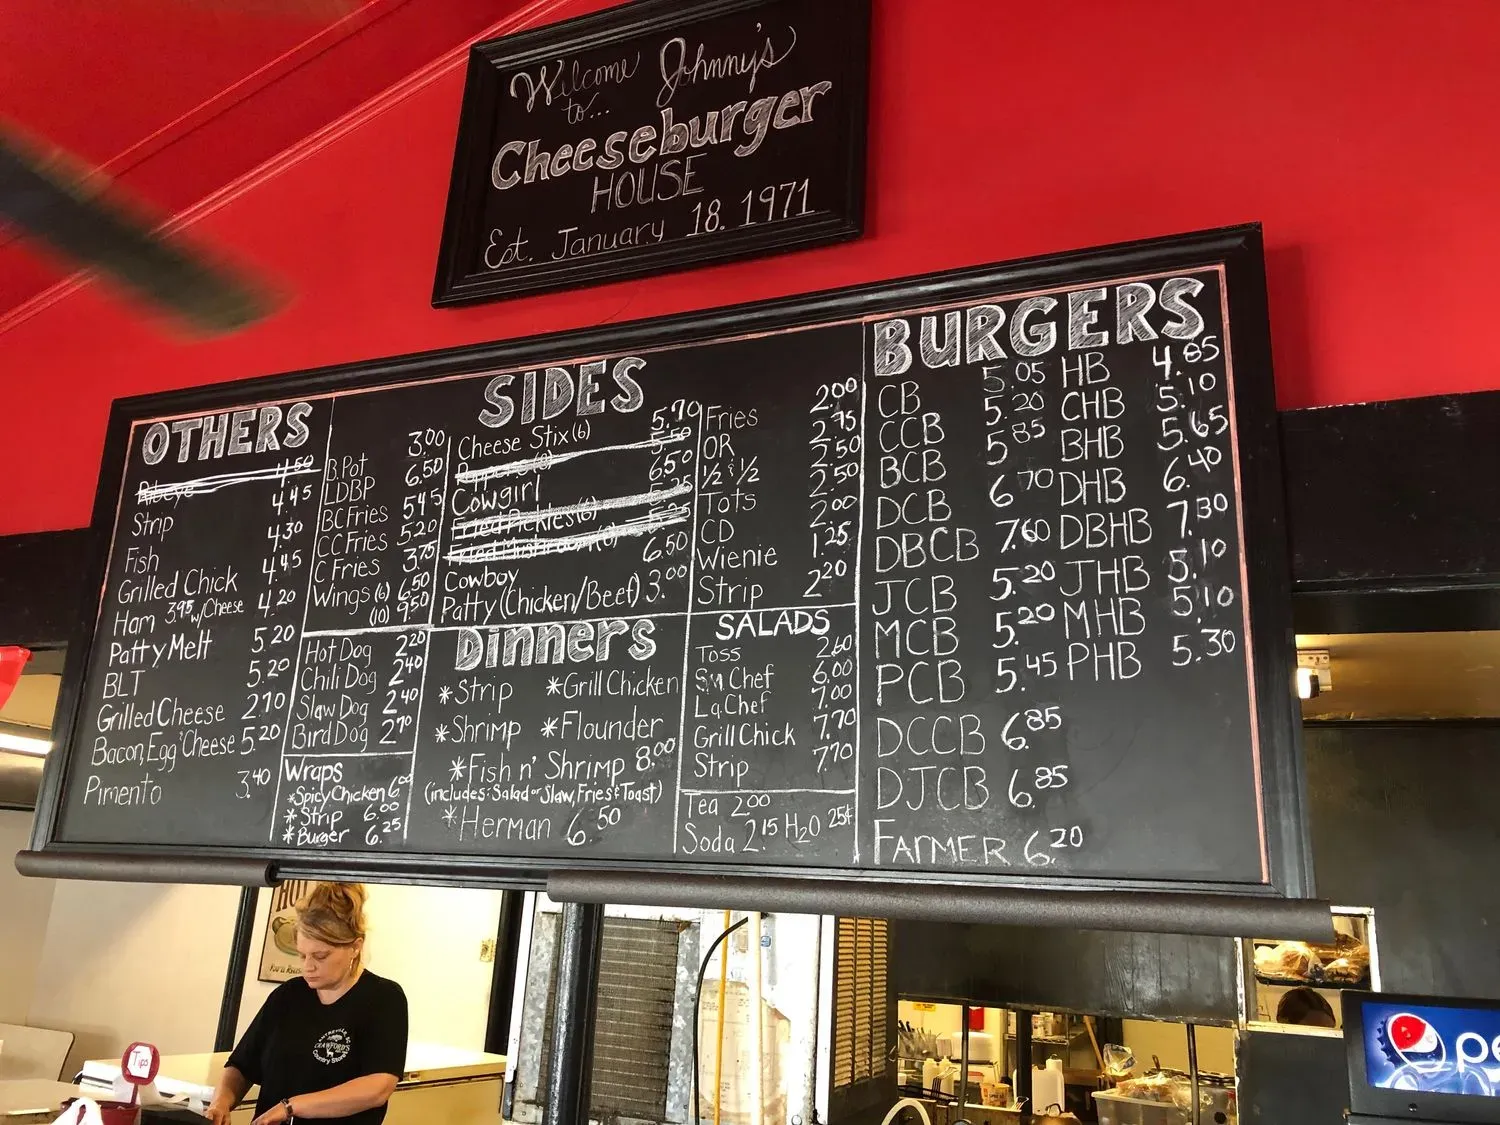 Welcome Johnny's
to...
Cheeseburger
HOUSE
Est. January 18, 1971
OTHERS
Ribeye 4.50
Strip 4.45
Fish 4.30
Grilled Chick 4.45
Ham 3.95 w/Cheese 4.20
Patty Melt 5.20
BLT 5.20
Grilled Cheese 2.70
Bacon, Egg Cheese 5.20
Pimento 3.40
SIDES
B.Pot 3.00
LDBP 6.50
BC Fries 5.45
CC Fries 5.20
C Fries 3.75
Wings (6) 6.50
(10) 9.50
Cheese Stix (6) 5.70
Poppers (8) 5.50
Cowgirl 6.50
Fried Pickles (6) 5.25
Fried Mushroom (8) 5.25
Cowboy 6.50
Patty (Chicken/Beef) 3.00
Fries 2.00
OR 2.75
1/2 & 1/2 2.50
Tots 2.50
CD 2.00
Wienie 1.25
Strip 2.20
Hot Dog 2.20
Chili Dog 2.40
Slaw Dog 2.40
Bird Dog 2.70
Wraps
*Spicy Chicken 6.00
*Strip 6.00
*Burger 6.25
Dinners
*Strip *Grill Chicken
*Shrimp *Flounder
*Fish n' Shrimp 8.00
(includes: Salad or Slaw, Fries & Toast)
*Herman 6.50
SALADS
Toss 2.60
Sm Chef 6.00
Lg Chef 7.00
Grill Chick 7.70
Strip 7.70
Tea 2.00
Soda 2.15 H2O 25¢
BURGERS
CB 5.05 HB 4.85
CCB 5.20 CHB 5.10
BCB 5.85 BHB 5.65
DCB 6.70 DHB 6.40
DBCB 7.60 DBHB 7.30
JCB 5.20 JHB 5.10
MCB 5.20 MHB 5.10
PCB 5.45 PHB 5.30
DCCB 6.85
DJCB 6.85
FARMER 6.20
CRAWFORD'S
Country Store
Tips
pe